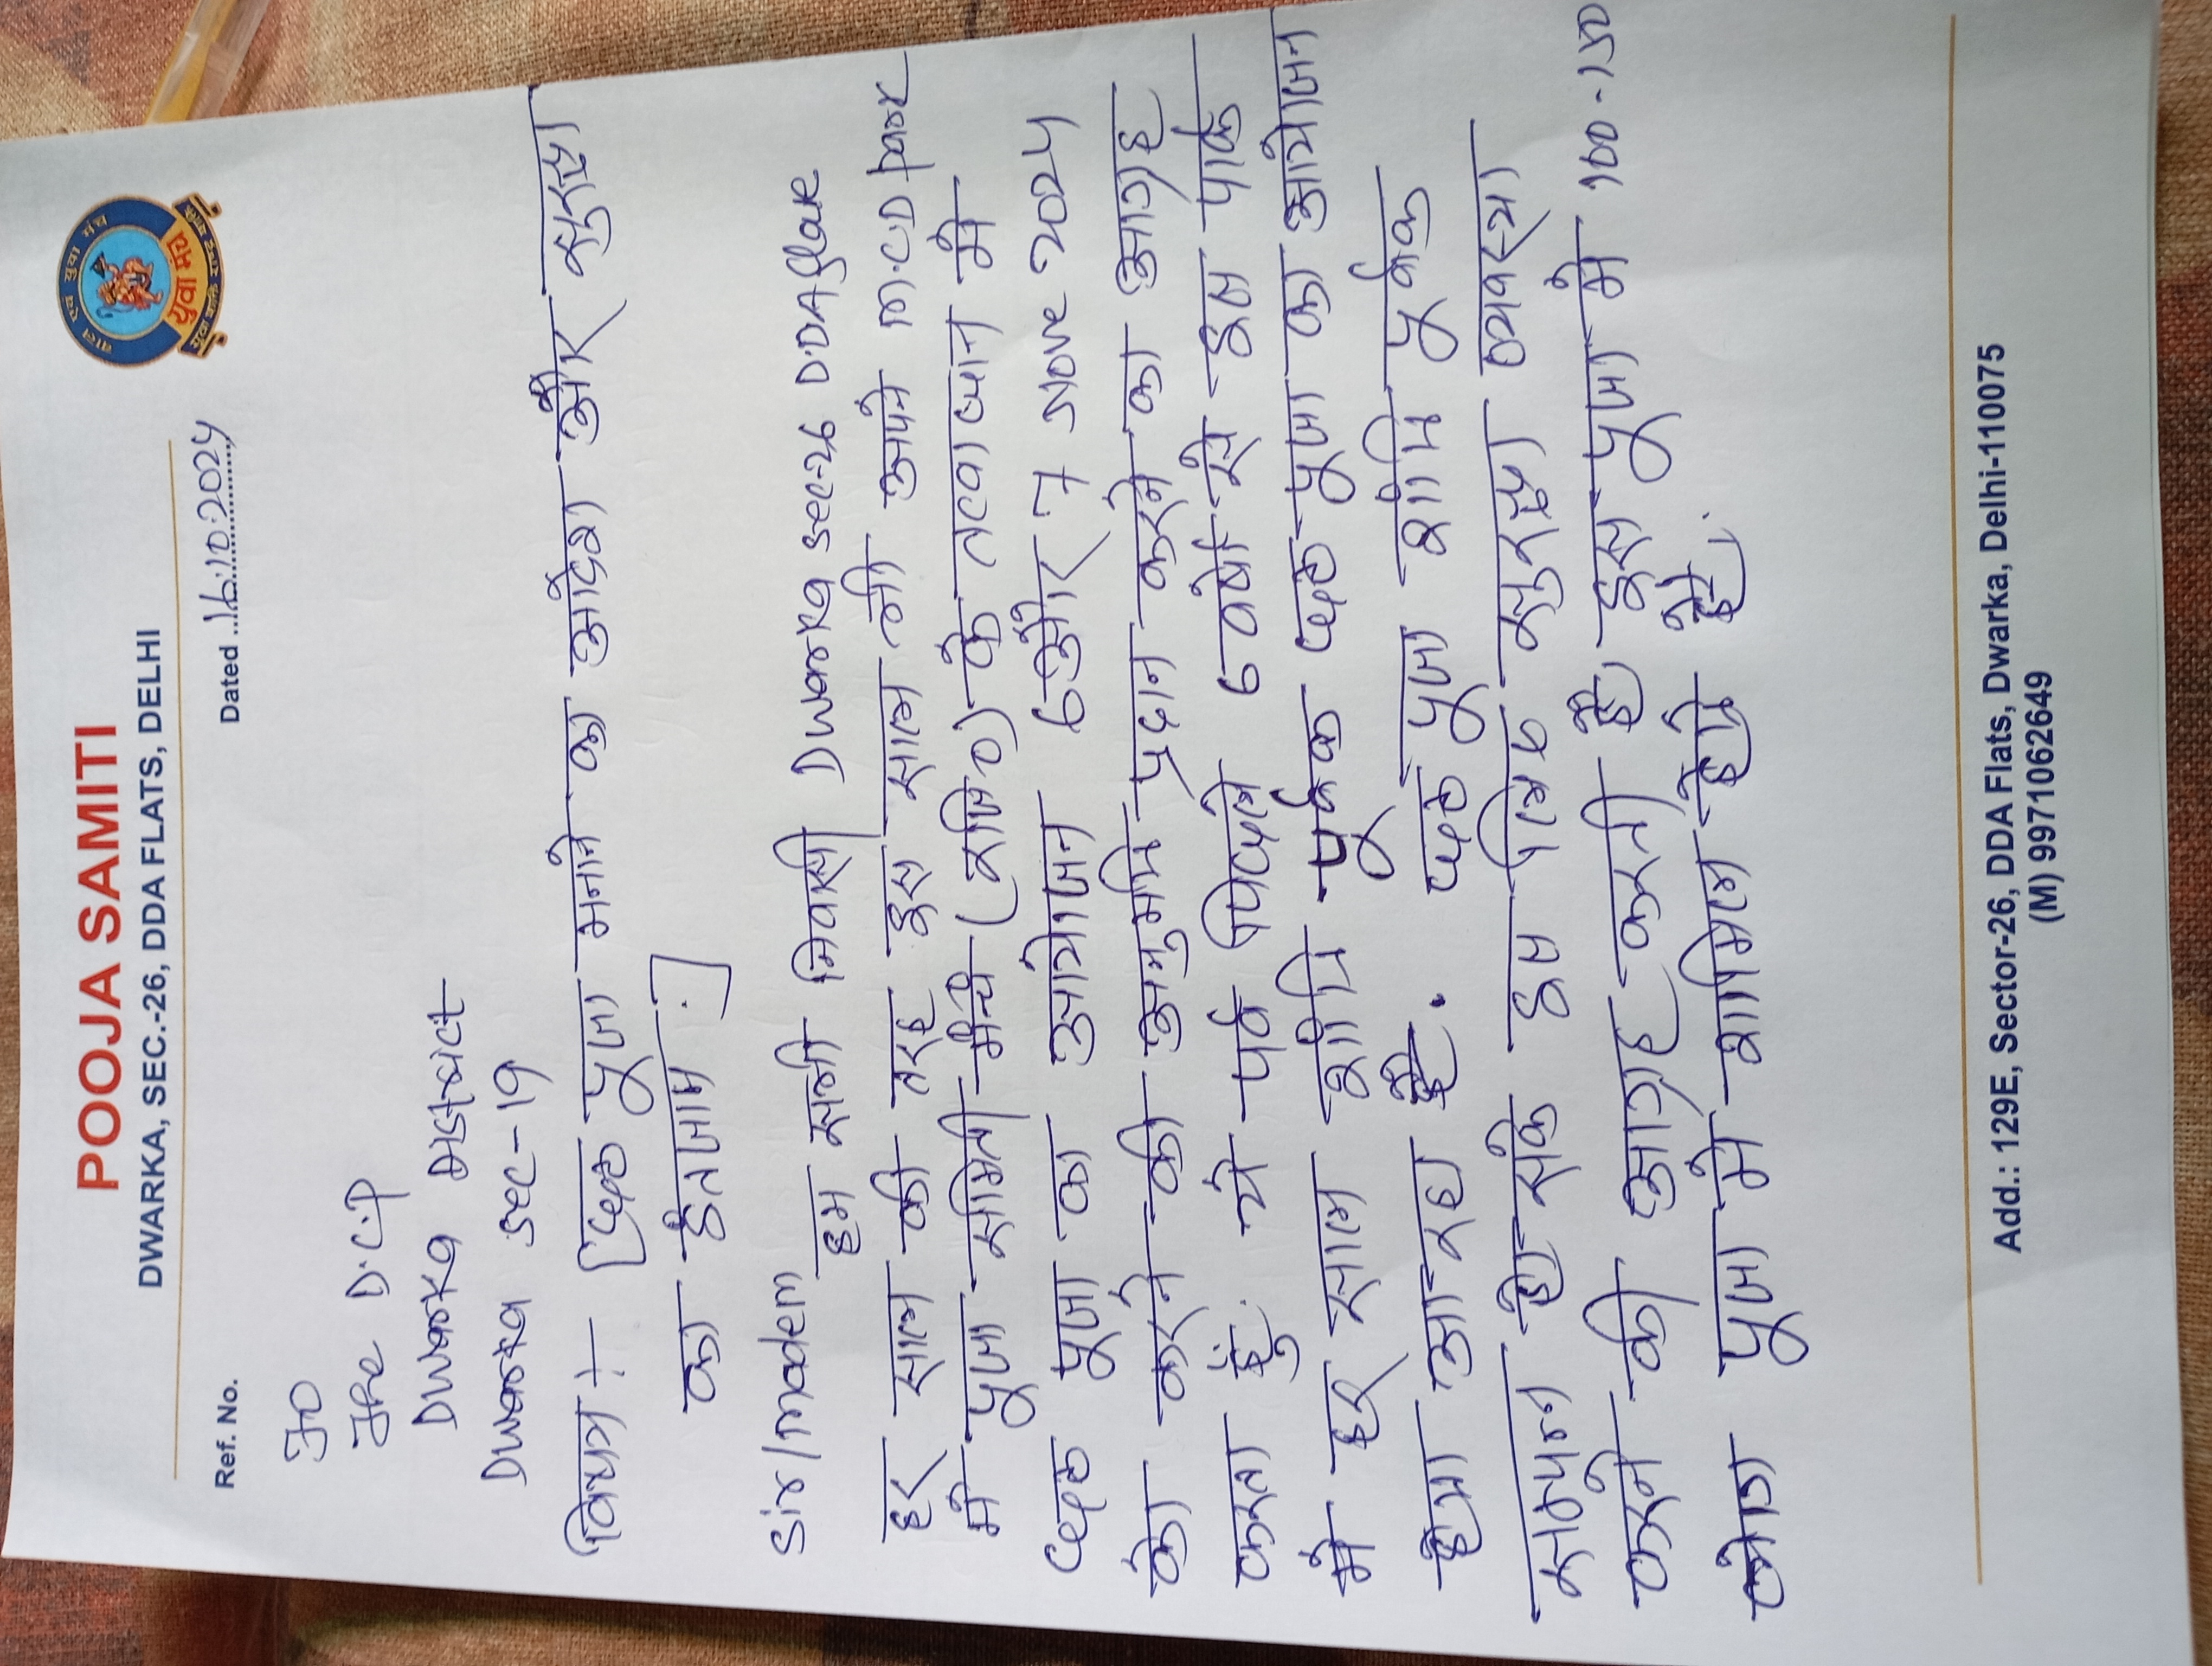 POOJA SAMITI
DWARKA, SEC.-26, DDA FLATS, DELHI
बाल एवं युवा मंच
युवा मंच
Ref. No.
Dated ..16.10.2024
To
The D.C.P
Dwarka
Dwarka sec-19
विषय :- [छठ पूजा मनाने का आदेश और सुरक्षा
का इंतजाम.]
Sir/madem
हम सभी निवासी Dwarka sec-26 DDA flare
हर साल की तरह इस साल भी अपने M.C.D park
मे पूजा समिती मंच (रजि०) के तत्वाधान मे
छठ पूजा का आयोजन 6 और 7 Nove 2024
को करने की अनुमति प्रदान करने का आग्रह
करता हुँ. ये पर्व पिछले 6 वर्षो से इस पार्क
मे हर साल शांति पूर्वक छठ पूजा का आयोजन
होता आ रहा है. छठ पूजा शांति पूर्वक
सम्पन्न हो सके इस लिए सुरक्षा व्यवस्था
करने की आग्रह करती है, इस पूजा मे 100-150
लोग पूजा मे शामिल होते है.
Add.: 129E, Sector-26, DDA Flats, Dwarka, Delhi-110075
(M) 9971062649